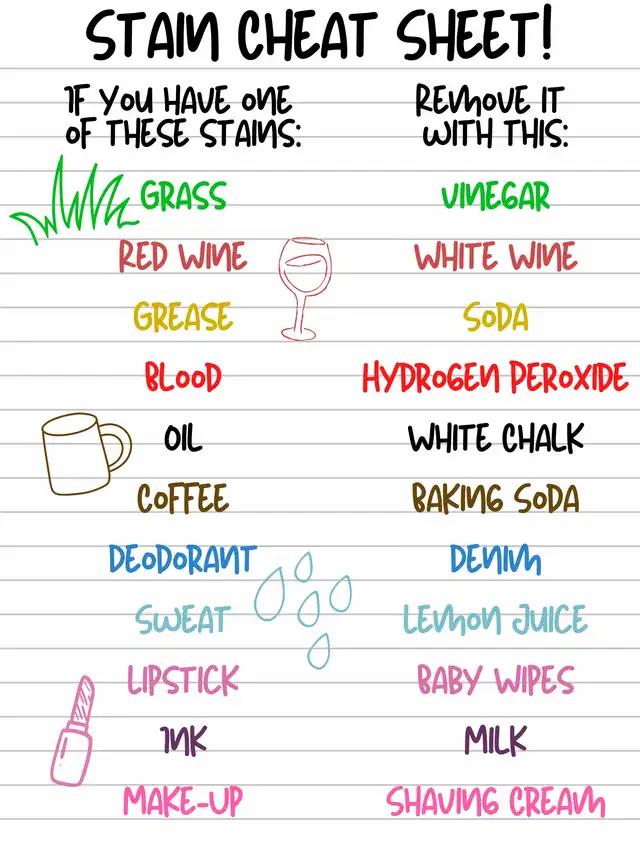 STAIN CHEAT SHEET!
IF YOU HAVE ONE OF THESE STAINS:
REMOVE IT WITH THIS:
GRASS VINEGAR
RED WINE WHITE WINE
GREASE SODA
BLOOD HYDROGEN PEROXIDE
OIL WHITE CHALK
COFFEE BAKING SODA
DEODORANT DENIM
SWEAT LEMON JUICE
LIPSTICK BABY WIPES
INK MILK
MAKE-UP SHAVING CREAM